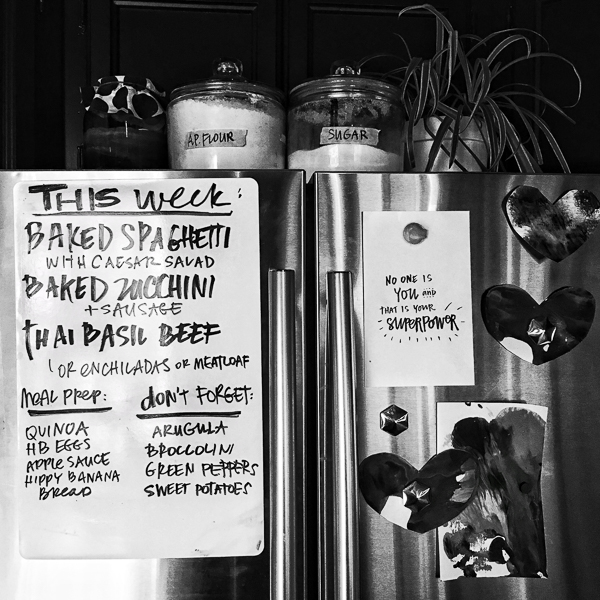 A.P. FLOUR
SUGAR
THIS week:
BAKED SPAGHETTI
WITH CAESAR SALAD
BAKED ZUCCHINI
+ SAUSAGE
THAI BASIL BEEF
OR ENCHILADAS OR MEATLOAF
MEAL PREP:
QUINOA
HB EGGS
APPLE SAUCE
HIPPY BANANA
BREAD
DON'T FORGET:
ARUGULA
BROCCOLINI
GREEN PEPPERS
SWEET POTATOES
NO ONE IS
YOU and
THAT IS YOUR
SUPERPOWER